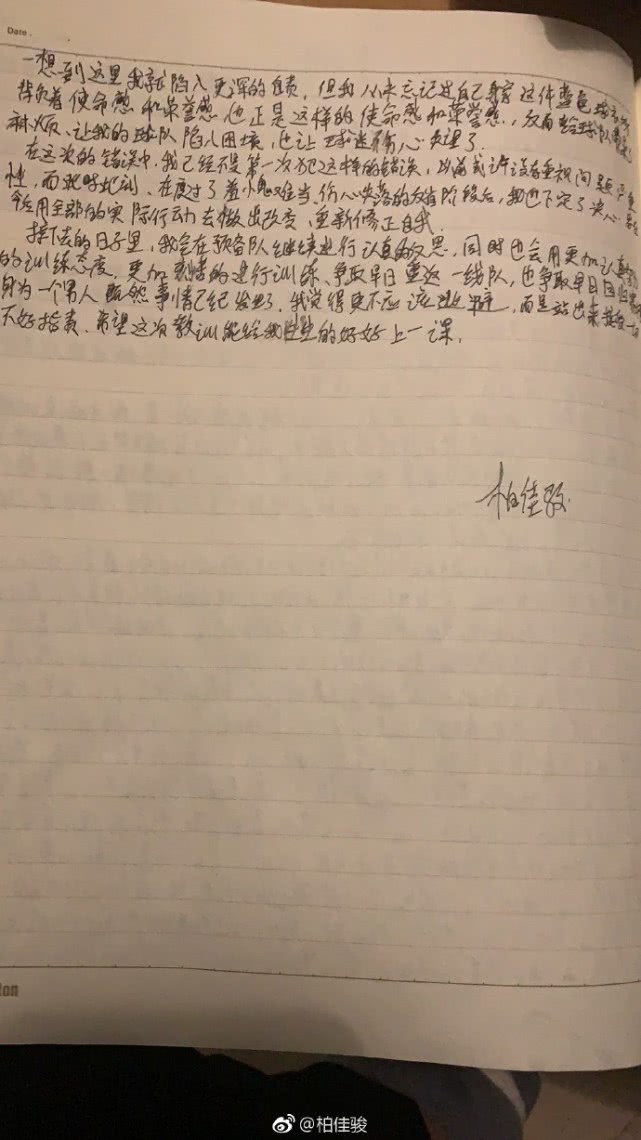 Date.
一想到这里我就陷入更深的自责,但我从未忘记过自己身穿这件蓝色球衣所
背负着使命感和荣誉感,也正是这样的使命感和荣誉感,反而给球队
麻烦、让我的球队陷入困境,也让球迷伤心失望了
在这次的错误中,我已经不是第一次犯这样的错误,以前或许没有重视问题严重
性,而此时此刻、在度过了羞愧难当、伤心失落的反省阶段后,我也下定了决心
用全部的实际行动去做出改变、重新修正自我.
接下去的日子里,我会在预备队继续进行认真的反思,同时也会用更加认真
的训练态度,更加刻苦的进行训练、争取早日重返一线队,也争取早日回归
身为一个男人既然事情已经发生了.我觉得更不应该逃避,而是站出来接受
指责、希望这次教训能给我好好上一课.
柏佳骏
@柏佳骏